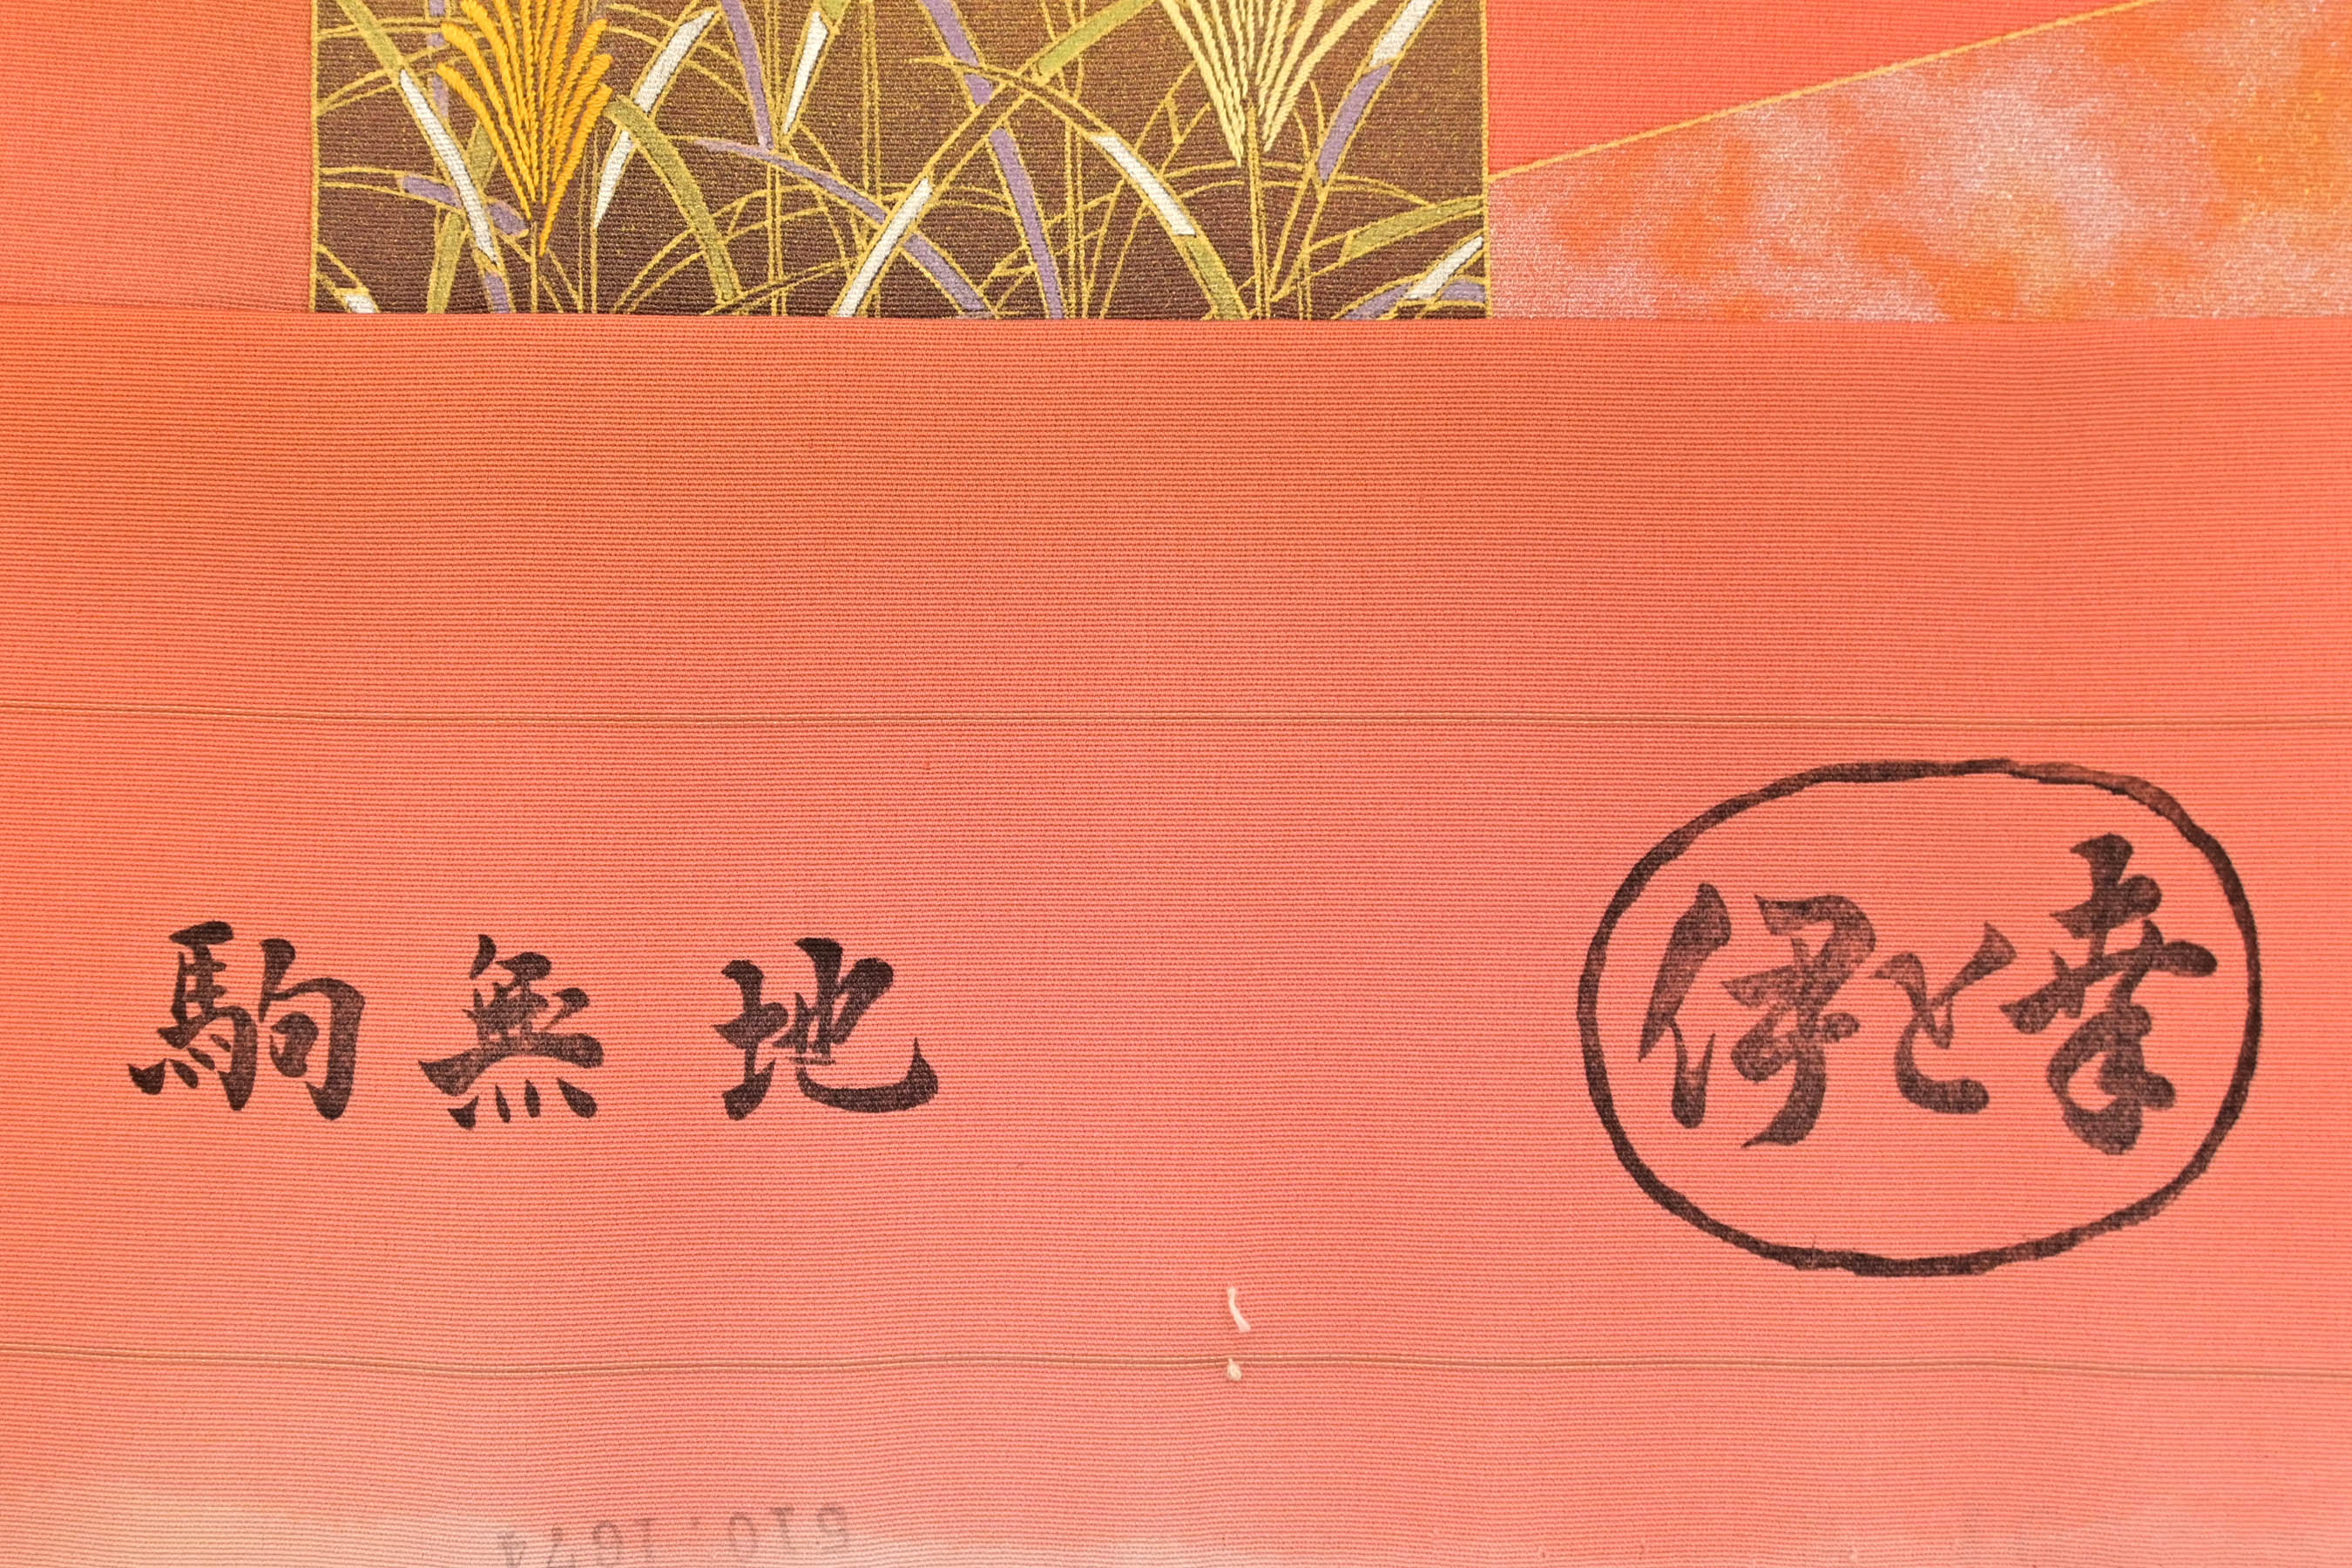 駒無地
伊と幸
510.1674